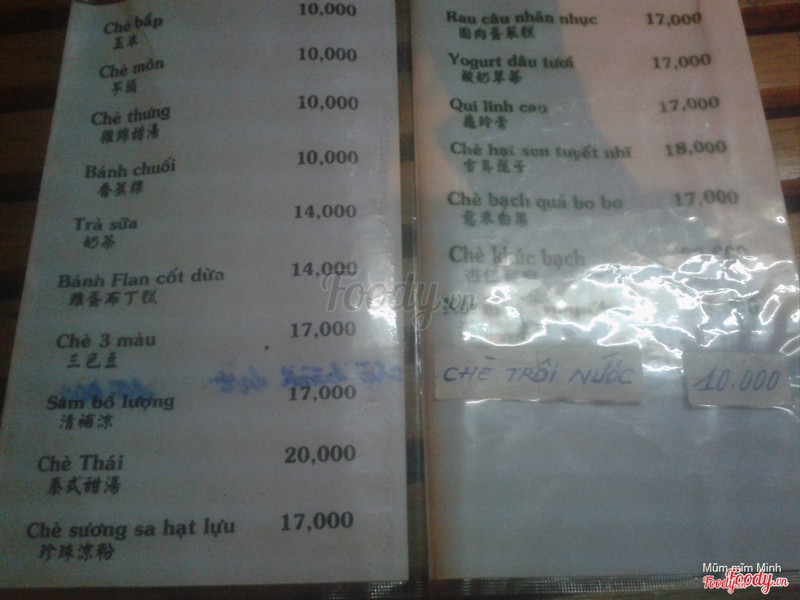 Chè bắp 10,000
玉米
Chè môn 10,000
芋頭
Chè thưng 10,000
雜錦甜湯
Bánh chuối 10,000
香蕉糕
Trà sữa 14,000
奶茶
Bánh Flan cốt dừa 14,000
雞蛋布丁糕
Chè 3 màu 17,000
三色豆
Sâm bổ lượng 17,000
清補涼
Chè Thái 20,000
泰式甜湯
Chè sương sa hạt lựu 17,000
珍珠涼粉
Rau câu nhãn nhục 17,000
圆肉蛋散糕
Yogurt dâu tươi 17,000
酸奶草莓
Qui linh cao 17,000
龜玲膏
Chè hạt sen tuyết nhĩ 18,000
雪耳莲子
Chè bạch quả bo bo 17,000
薏米白果
Chè khúc bạch
杏仁
CHÈ TRÔI NƯỚC 10.000
Foody.vn
Mũm mĩm Minh
Foody.vn